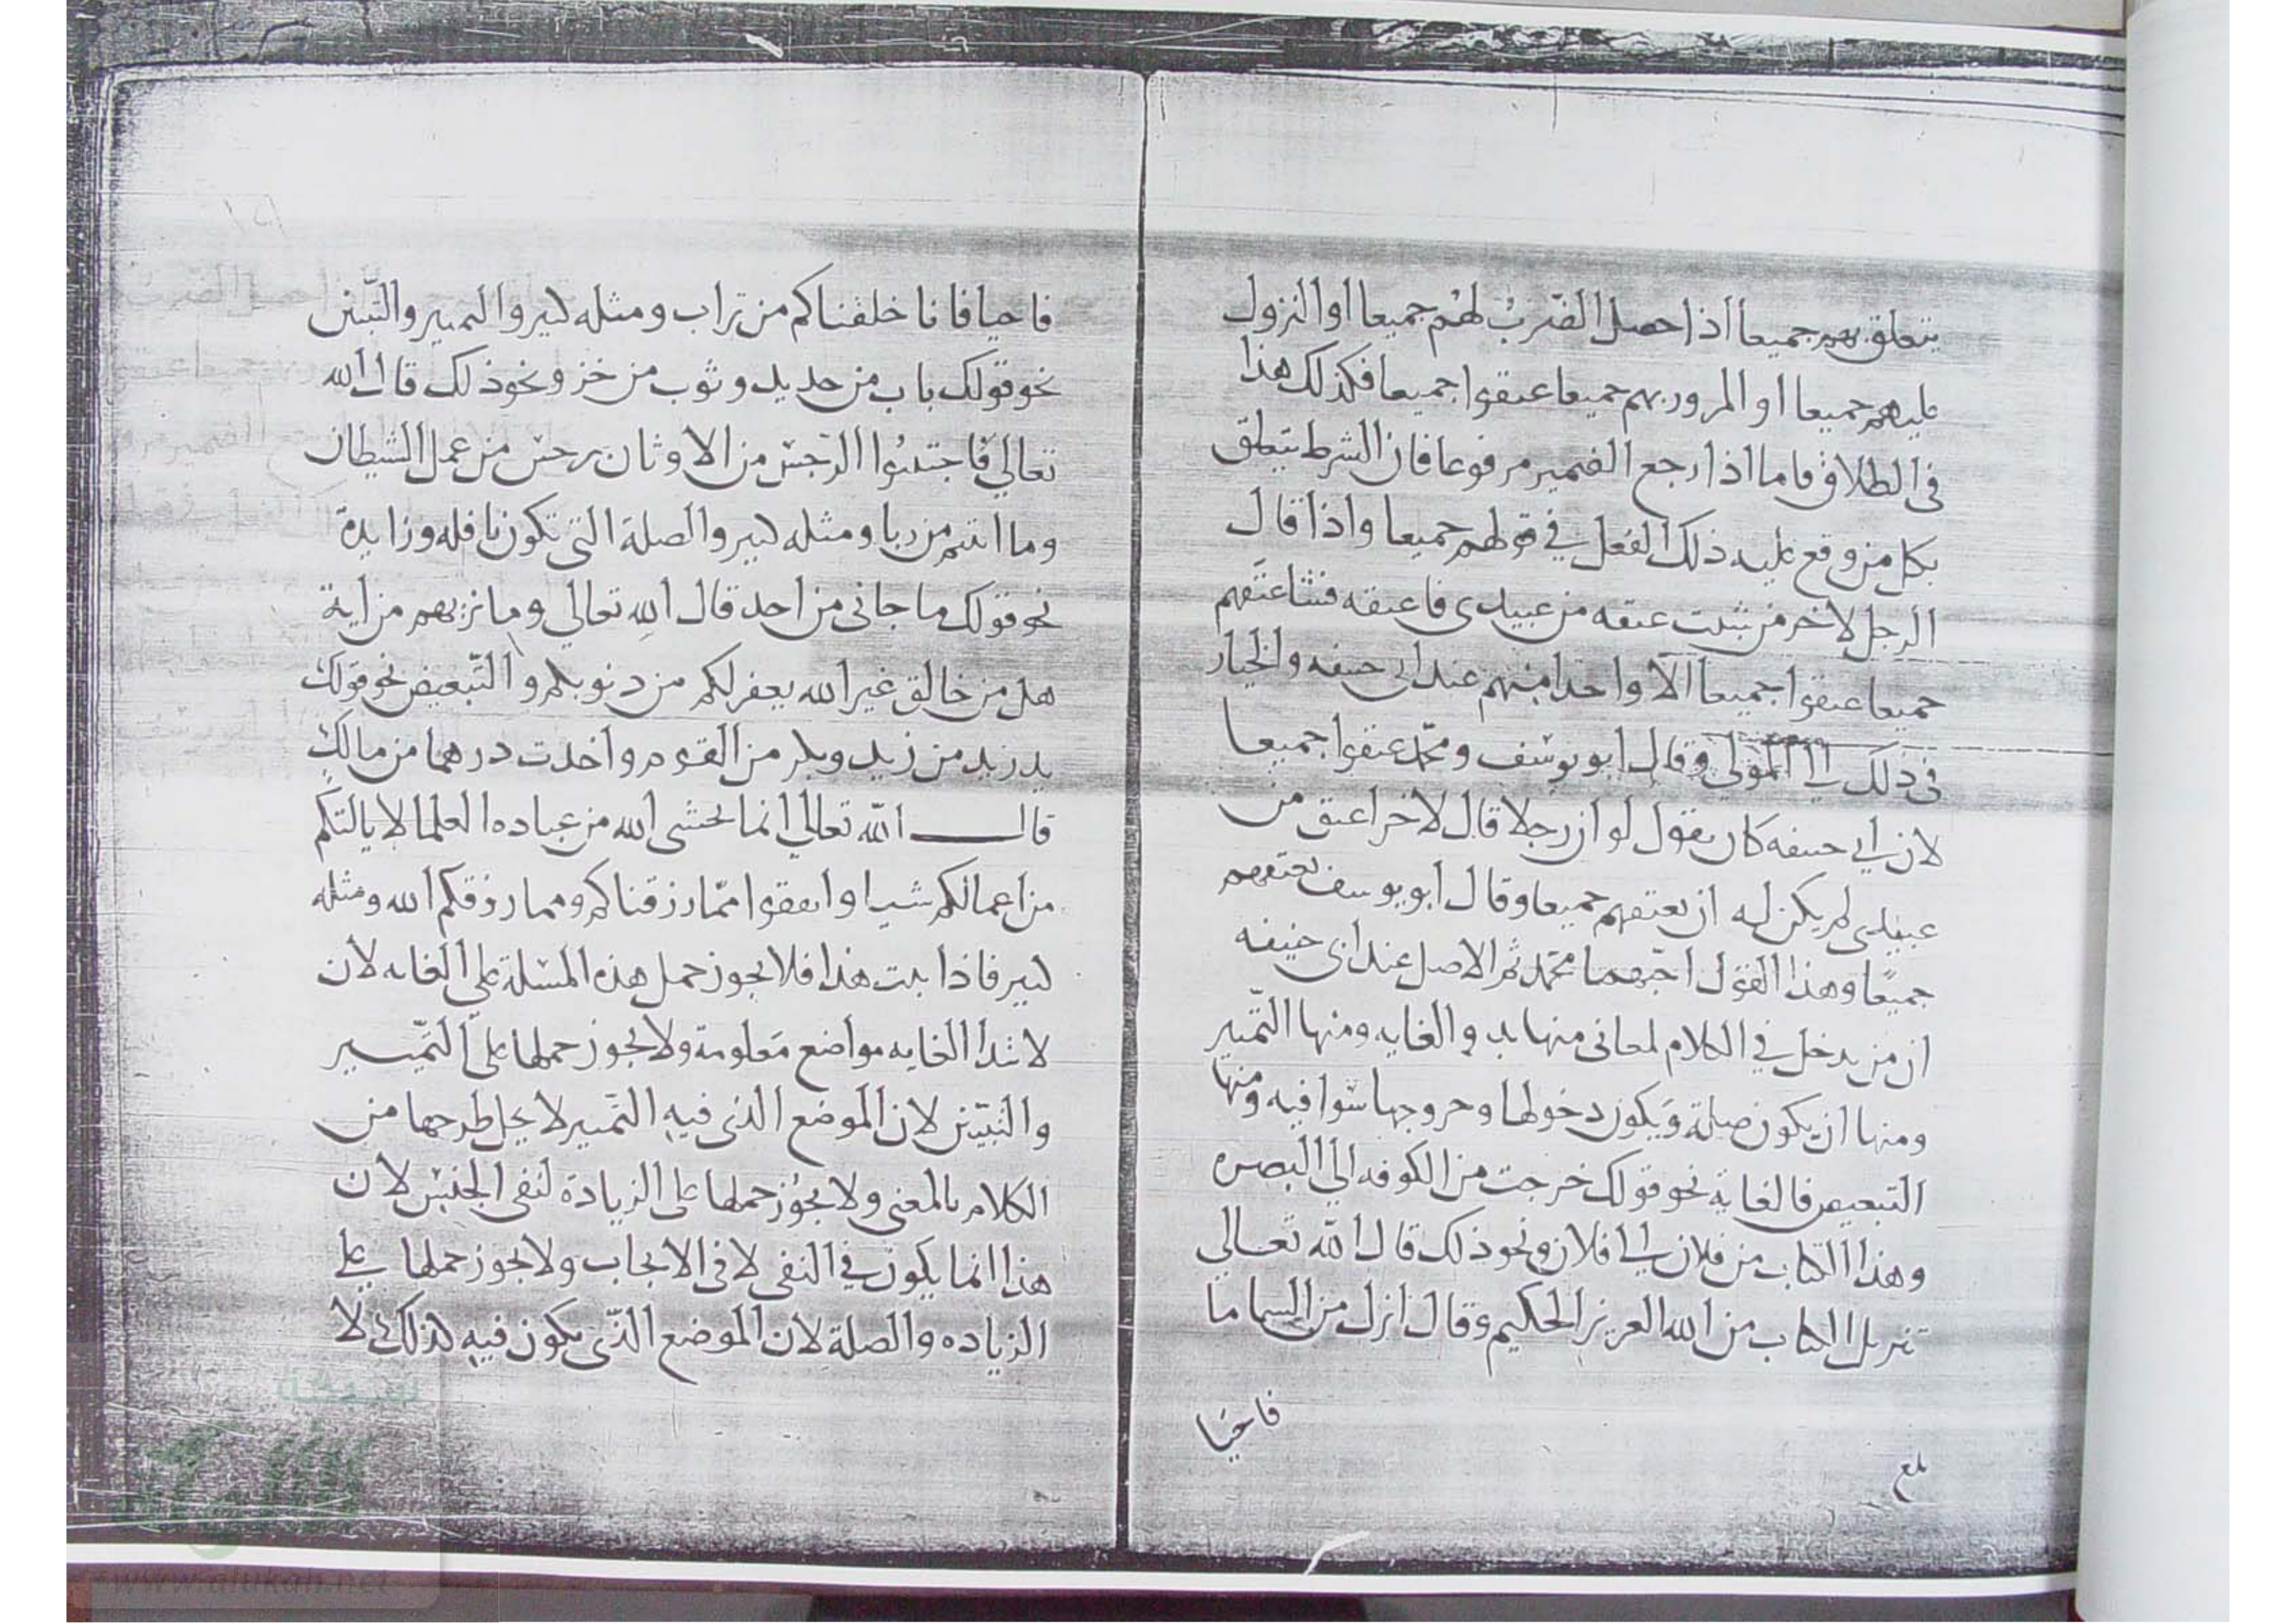 يتعلق بهم جميعا اذا حصل الضرب لهم جميعا او النزول
عليهم جميعا او المرور بهم جميعا عتقوا جميعا فكذلك هذا
فى الطلاق فاما اذا رجع الضمير مرفوعا فان الشرط يتعلق
بكل من وقع عليه ذلك الفعل في قولهم جميعا واذا قال
الرجل لاخر من شئت عتقه من عبيدى فاعتقه فشا عتقهم
جميعا عتقوا جميعا الا واحدا منهم عند ابى حنيفه والخيار
فى ذلك الي المولى وقال ابو يوسف ومحمد عتقوا جميعا
لان ابي حنيفه كان يقول لو ان رجلا قال لاخر اعتق من
عبيدى لم يكن له ان يعتقهم جميعا وقال ابو يوسف يعتقهم
جميعا وهذا القول احبهما محمد ثم الاصل عند ابى حنيفه
ان من يدخل في الكلام لمعانى منها بدو الغايه ومنها التمييز
ومنها ان يكون صلة ويكون دخولها وخروجها سوا فيه ومنها
التبعيض فالغاية نحو قولك خرجت من الكوفه الي البصره
وهذا الكتاب من فلان الي فلان ونحو ذلك قال الله تعالي
تنزيل الكتاب من الله العزيز الحكيم وقال انزل من السما ما
فاحيا
بلغ
فاحيا فانا خلقناكم من تراب ومثله كثير والتمييز والتبين
نحو قولك باب من حديد وثوب من خز ونحو ذلك قال الله
تعالي فاجتنبوا الرجس من الاوثان رجس من عمل الشيطان
وما اتيتم من ربا ومثله كثير والصلة التي تكون نافله وزايدة
نحو قولك ما جانى من احد قال الله تعالي وما تاتيهم من اية
هل من خالق غير الله يغفر لكم من ذنوبكم والتبعيض نحو قولك
يد زيد من زيد وبكر من القوم واخذت درهما من مالك
قال الله تعالي انما يخشى الله من عباده العلما لا يالتكم
من اعمالكم شيا وانفقوا مما رزقناكم ومما رزقكم الله ومثله
كثير فاذا ثبت هذا فلا يجوز حمل هذه المسئلة علي الغايه لان
لابتدا الغايه مواضع معلومة ولا يجوز حملها على التمييز
والتبين لان الموضع الذى فيه التمييز لا يخل طرحها من
الكلام بالمعنى ولا يجوز حملها على الزيادة لنفى الجنس لان
هذا انما يكون في النفى لا فى الايجاب ولا يجوز حملها على
الزياده والصلة لان الموضع الذى يكون فيه كذلك لا
شبكة
الألوكة
www.alukah.net